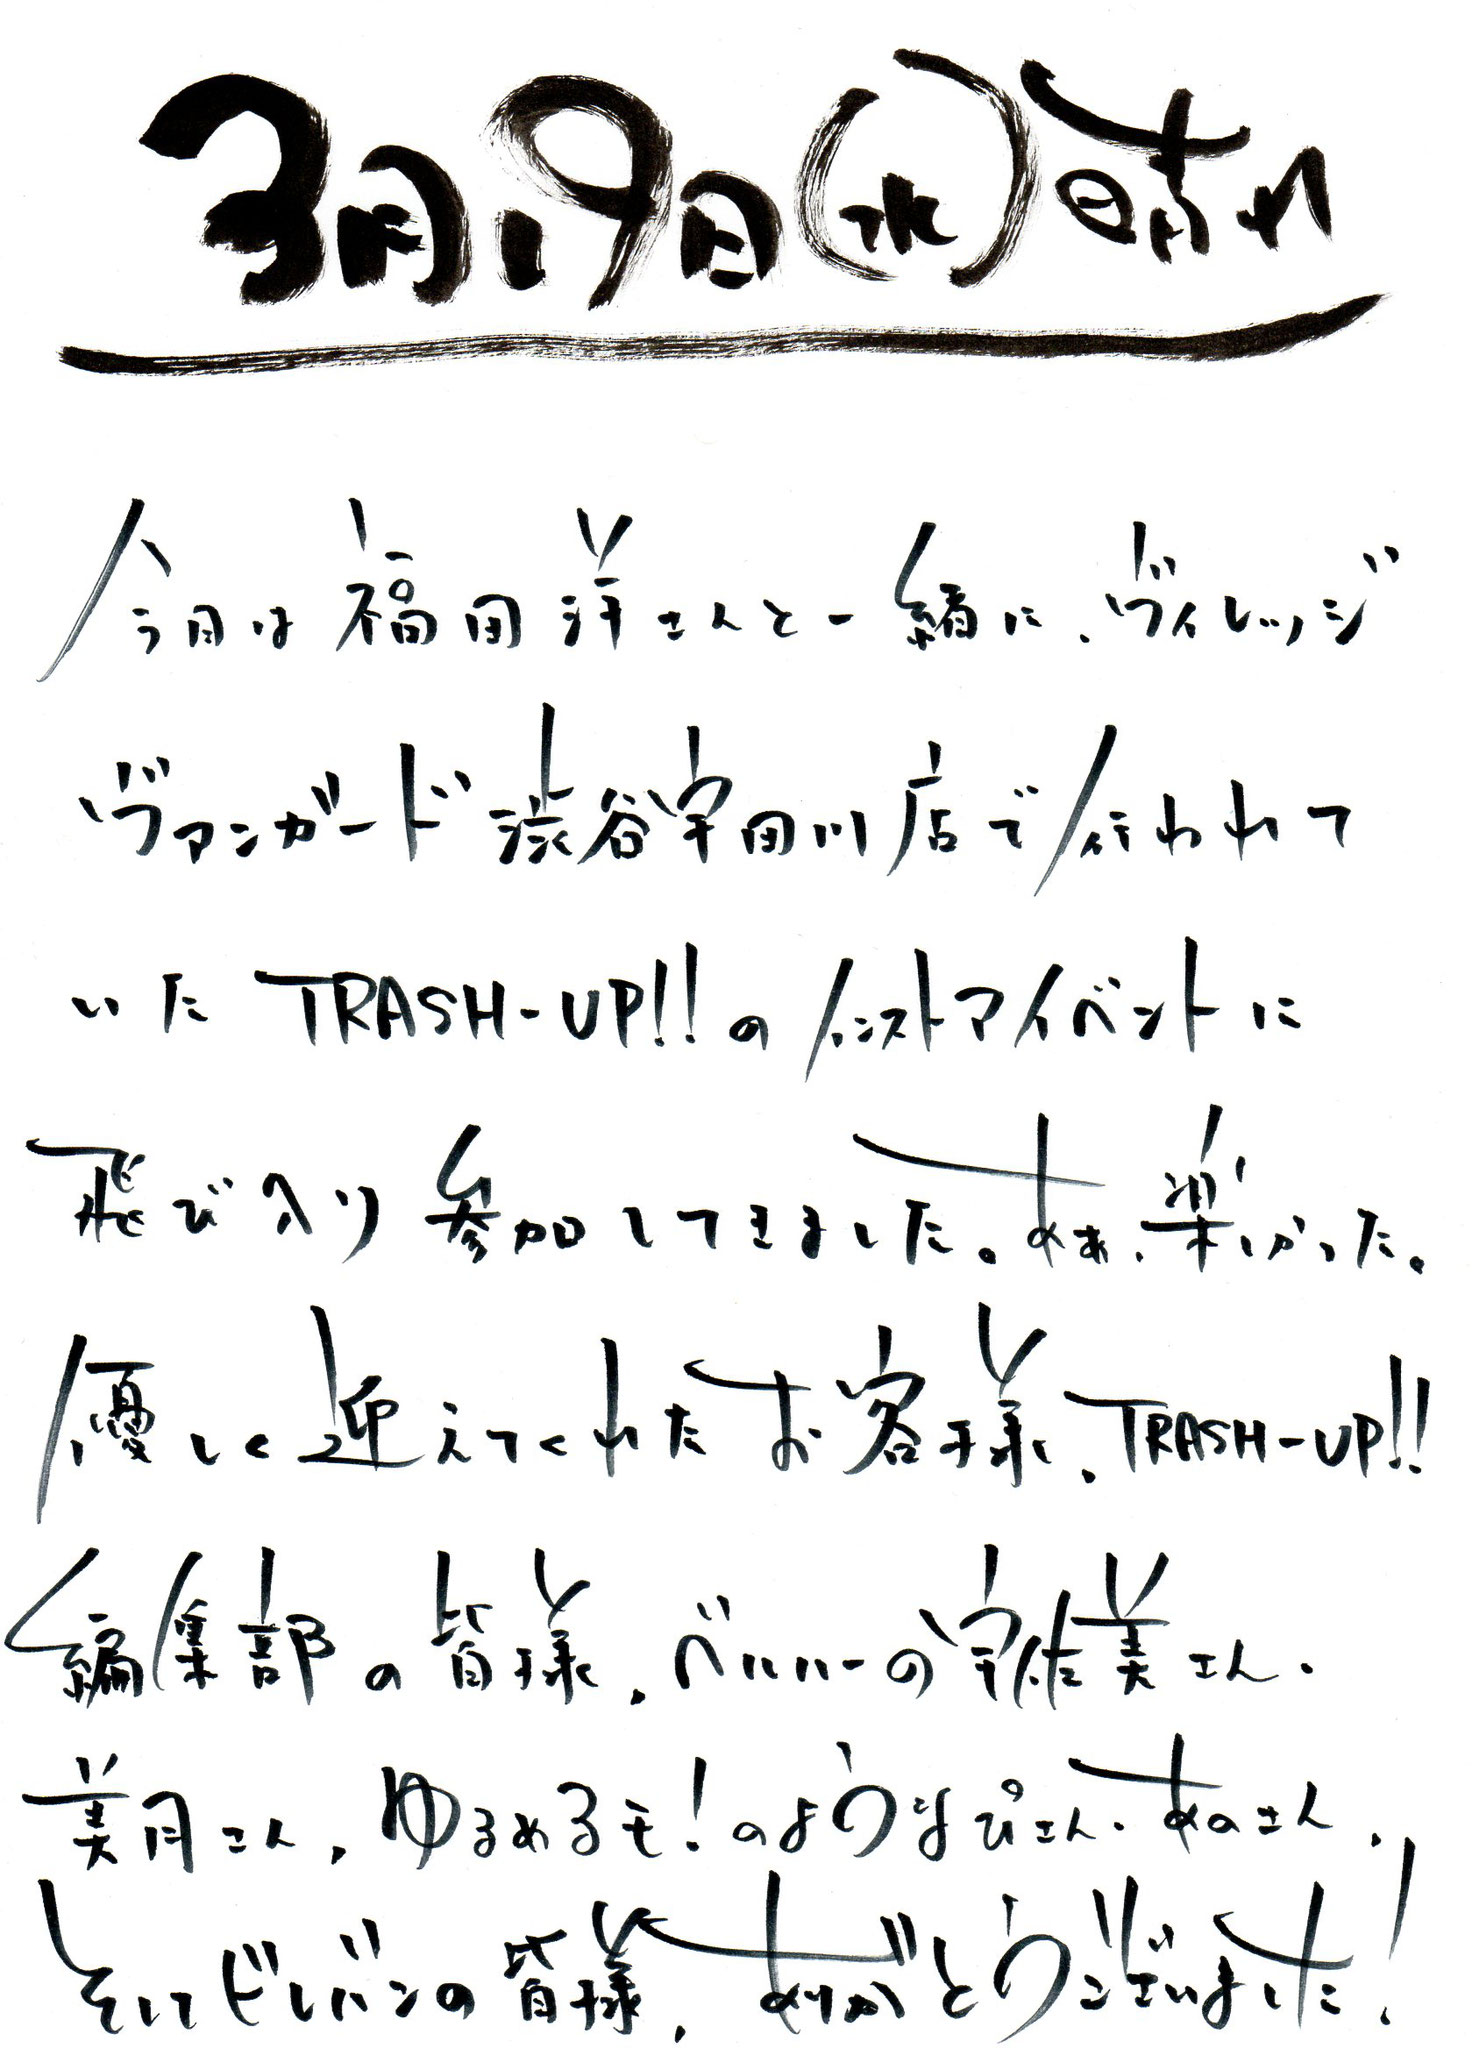 3月19日(水)晴れ
今日は福田洋さんと一緒に、ヴィレッジ
ヴァンガード渋谷宇田川店で行われて
いた TRASH-UP!!のインストアイベントに
飛び入り参加してきました。あぁ、楽しかった。
優しく迎えてくれたお客様、TRASH-UP!!
編集部の皆様、ベルハーの宇佐美さん・
美月さん、ゆるめるモ!のようなぴさん・あのさん、
そしてビレバンの皆様、ありがとうございました!